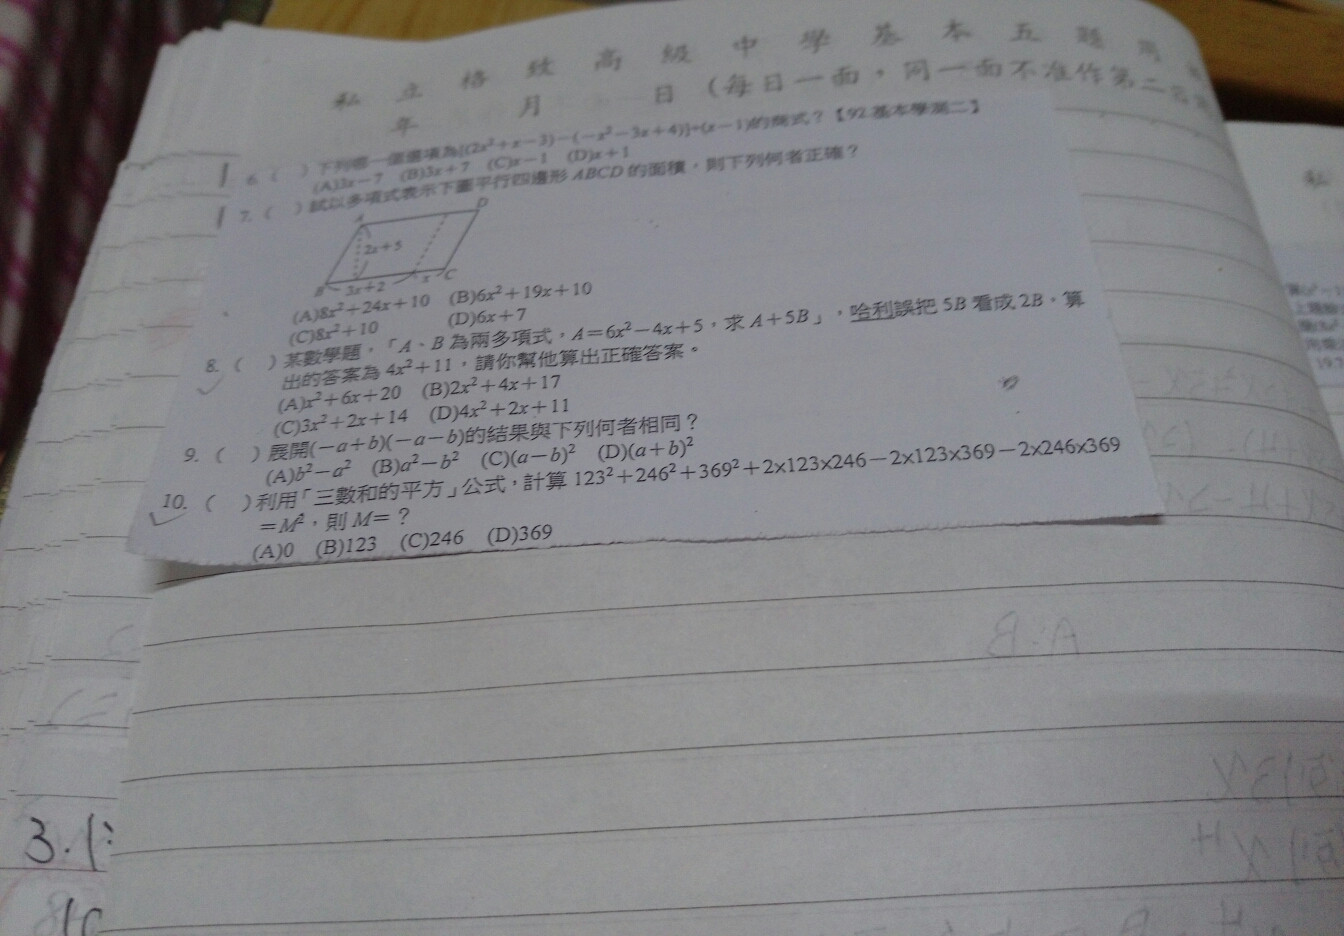 私立格致高級中學基本五題
年 月 日(每日一面,同一面不准作第二
6. ( )下列哪一個選項為[(2x²+x−3)−(−x²−3x+4)]÷(x−1)的商式?【92.基本學測二】
(A)3x−7 (B)3x+7 (C)x−1 (D)x+1
7. ( )試以多項式表示下圖平行四邊形ABCD的面積,則下列何者正確?
A D
2x+5
B 3x+2 x C
(A)8x²+24x+10 (B)6x²+19x+10
(C)8x²+10 (D)6x+7
8. ( )某數學題,「A、B為兩多項式,A=6x²−4x+5,求A+5B」,哈利誤把5B看成2B,算
出的答案為4x²+11,請你幫他算出正確答案。
(A)x²+6x+20 (B)2x²+4x+17
(C)3x²+2x+14 (D)4x²+2x+11
9. ( )展開(−a+b)(−a−b)的結果與下列何者相同?
(A)b²−a² (B)a²−b² (C)(a−b)² (D)(a+b)²
10. ( )利用「三數和的平方」公式,計算123²+246²+369²+2x123x246−2x123x369−2x246x369
=M²,則M=?
(A)0 (B)123 (C)246 (D)369
3.